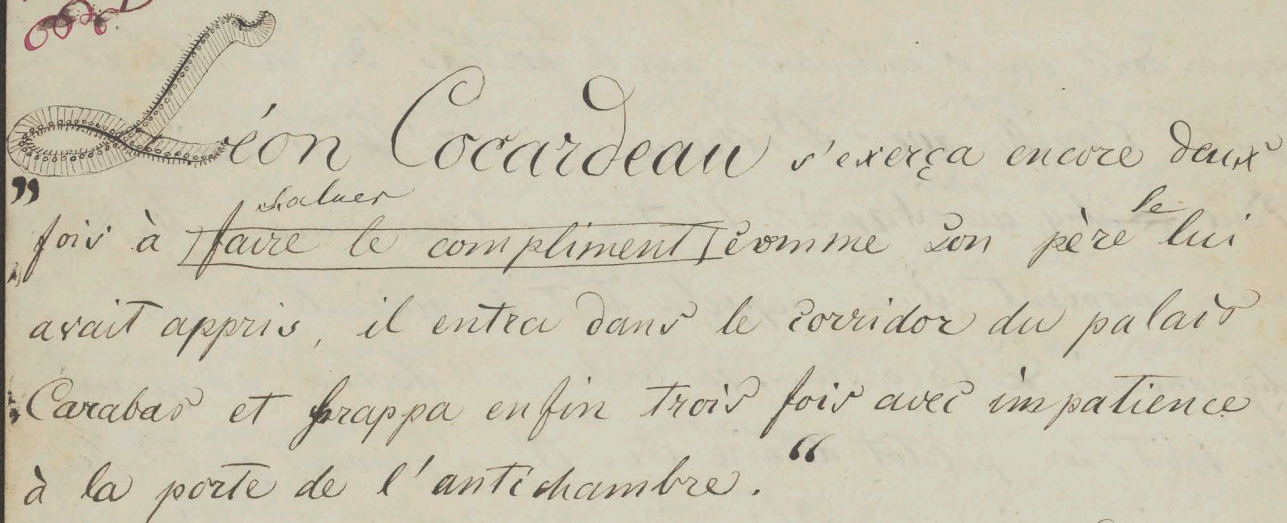 Léon Cocardeau s'exerça encore deux
„
saluer
le
fois à faire le compliment comme son père lui
avait appris, il entra dans le corridor du palais
Carabas et frappa enfin trois fois avec impatience
à la porte de l'antichambre.“